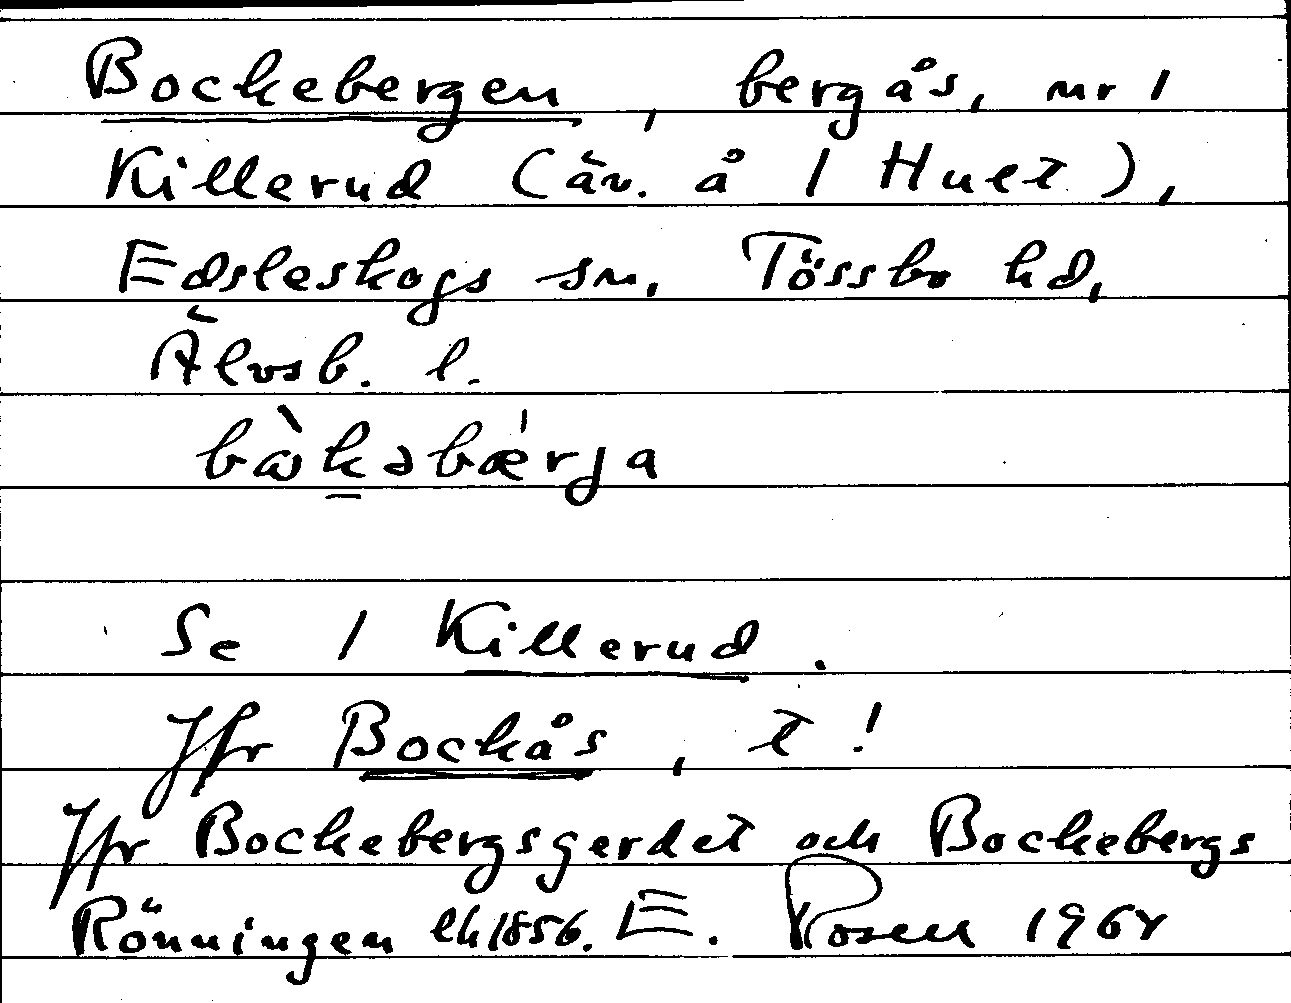 Bockebergen, bergås, nr 1
Killerud (äv. å 1 Hult),
Edsleskogs sn, Tössbo hd,
Älvsb. l.
Se 1 Killerud.
Jfr Bockås, t!
Jfr Bockebergsgerdet och Bockebergs
Rönningen lh 1856. E. Rosell